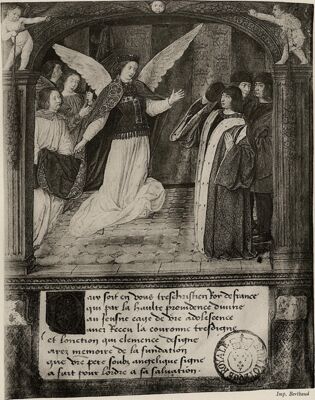 aix soit en vous treschristien Roy de france
qui par la haulte providence divine
au jeusne eage de vie adolescence
avez Receu la couronne tresdigne
et lonction qui clemence designe
ayez memoire de la fundation
que vre pere soubz angelique signe
a fait pour lordre a sa salvation.
Imp. Berthaud